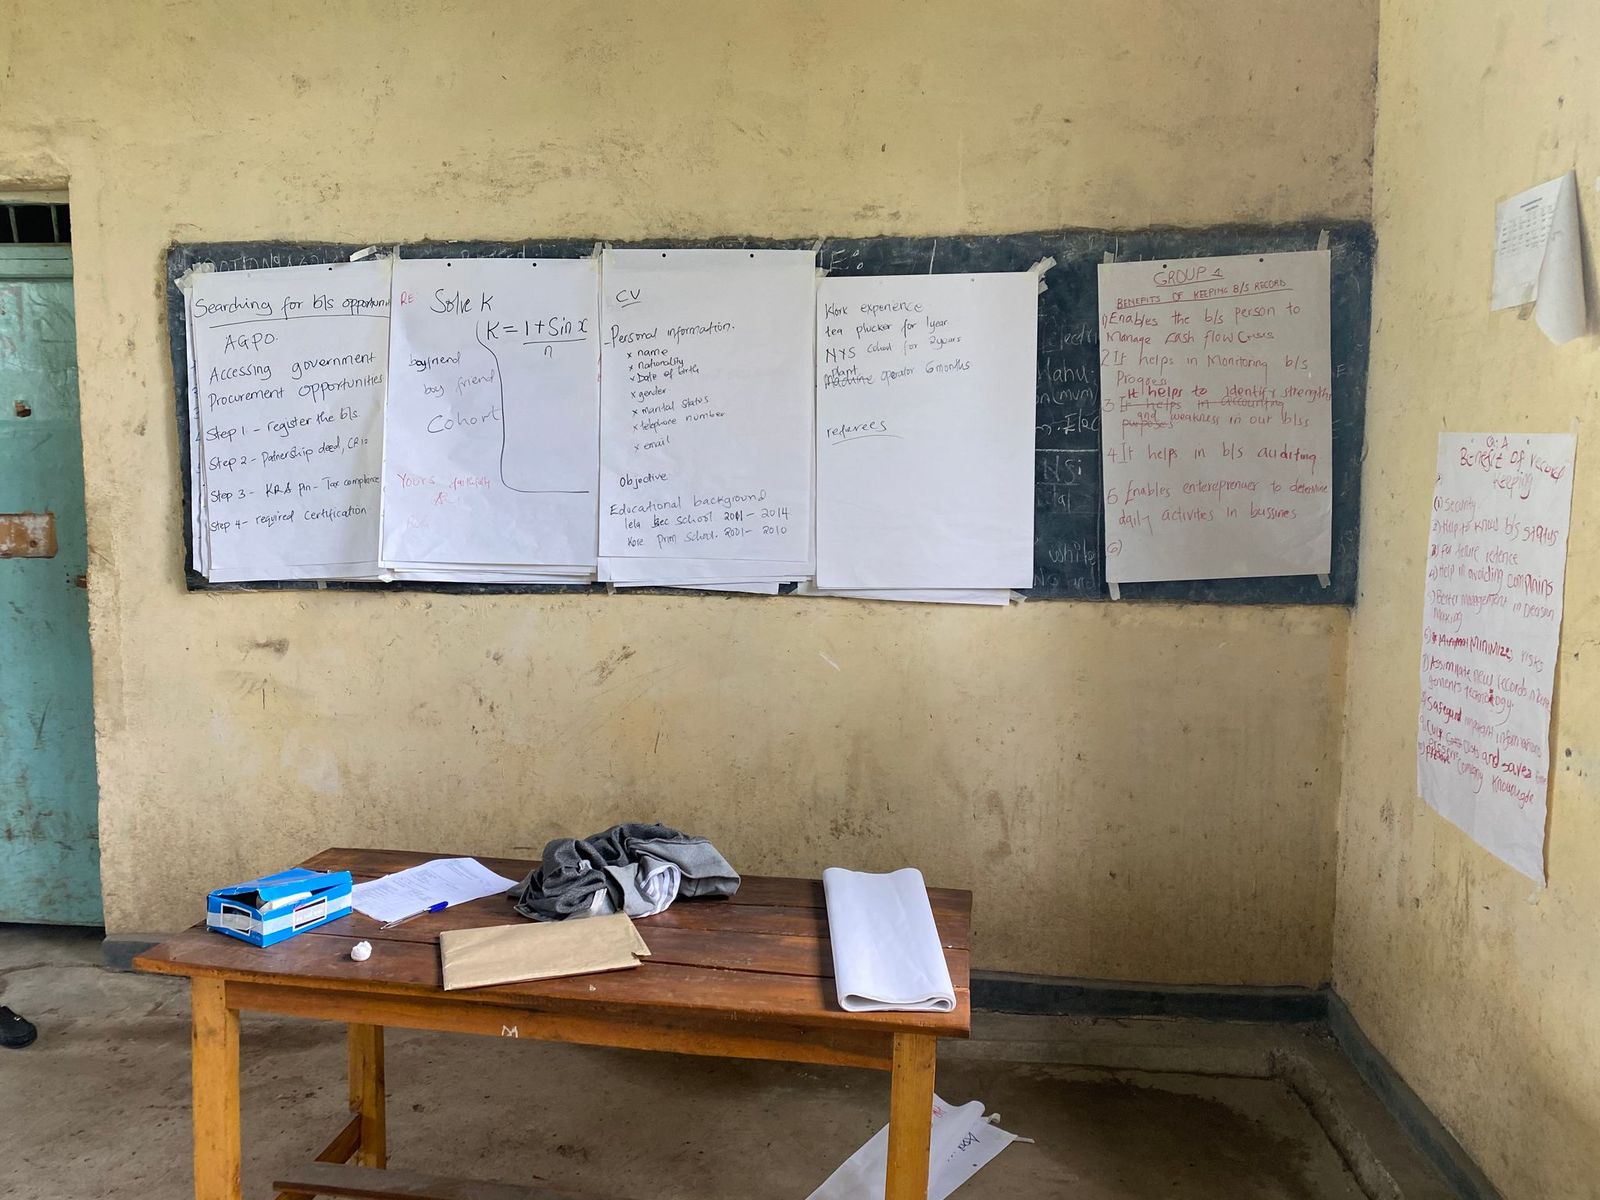 Searching for b/s opportuni
AGPO.
Accessing government
Procurement opportunities
Step 1 - register the b/s.
Step 2 - Patnership deed, CR12
Step 3 - KRA pin - Tax compliance
Step 4 - required Certification
RE:
Solve K
K = 1 + Sin x
n
boyfriend
boy friend
Cohort
Yours faithfully
CV
Personal information.
x name
x nationality
x Date of birth
x gender
x marital status
x telephone number
x email
Objective
Educational background
lela sec school 2011 - 2014
Kose prim school. 2001 - 2010
Work experience
tea plucker for 1year
NYS cohort for 2years
plant
machine operator 6 months
referees
GROUP 1
BENEFITS OF KEEPING B/S RECORD
1) Enables the b/s person to
Manage cash flow Crisis
2 It helps in Monitoring b/s
Progress
It helps to identify strengths
3 It helps in accounting
purposes and weakness in our b/ss
4 It helps in b/s auditing
5 Enables enterepreneuer to determine
daily activities in bussines
6)
Benefit of record
Keeping
(1) Security
2) Help to know b/s status
3) For future refence
4) Help in avoiding complains
5) Better management in Decision
Making
6) Minimizes risks
7) Assimilate new records
technology.
8) Safegurd important information
Costs and saves
Company Knowlegde